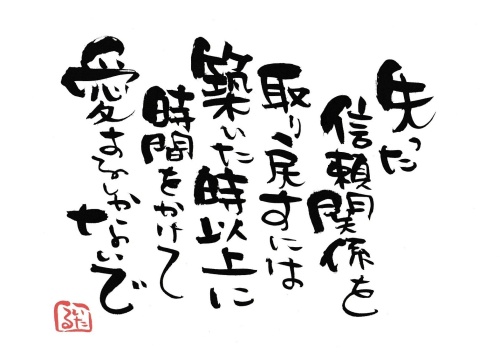 失った
信頼関係を
取り戻すには
築いた時以上に
時間をかけて
愛するしかない
いたる